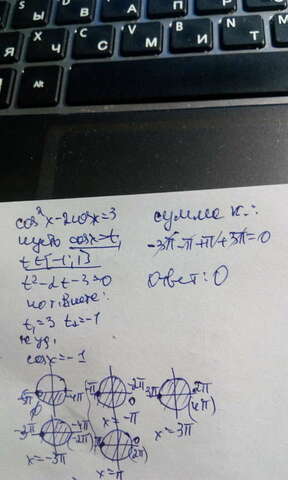 Ы В А П Р
Я Ч С М И Т
Alt
cos²x-2cosx=3
пусть cosx=t,
t∈[-1;1]
t²-2t-3=0
по т.Виета:
t₁=3 t₂=-1
не уд.
cosx=-1
-4π
-π -2π 0
3π 2π (4π)
x=-π
x=3π
-3π -4π (-2π)
0 (2π)
x=-3π
x=π
сумма к.:
-3π-π+π+3π=0
ответ: 0